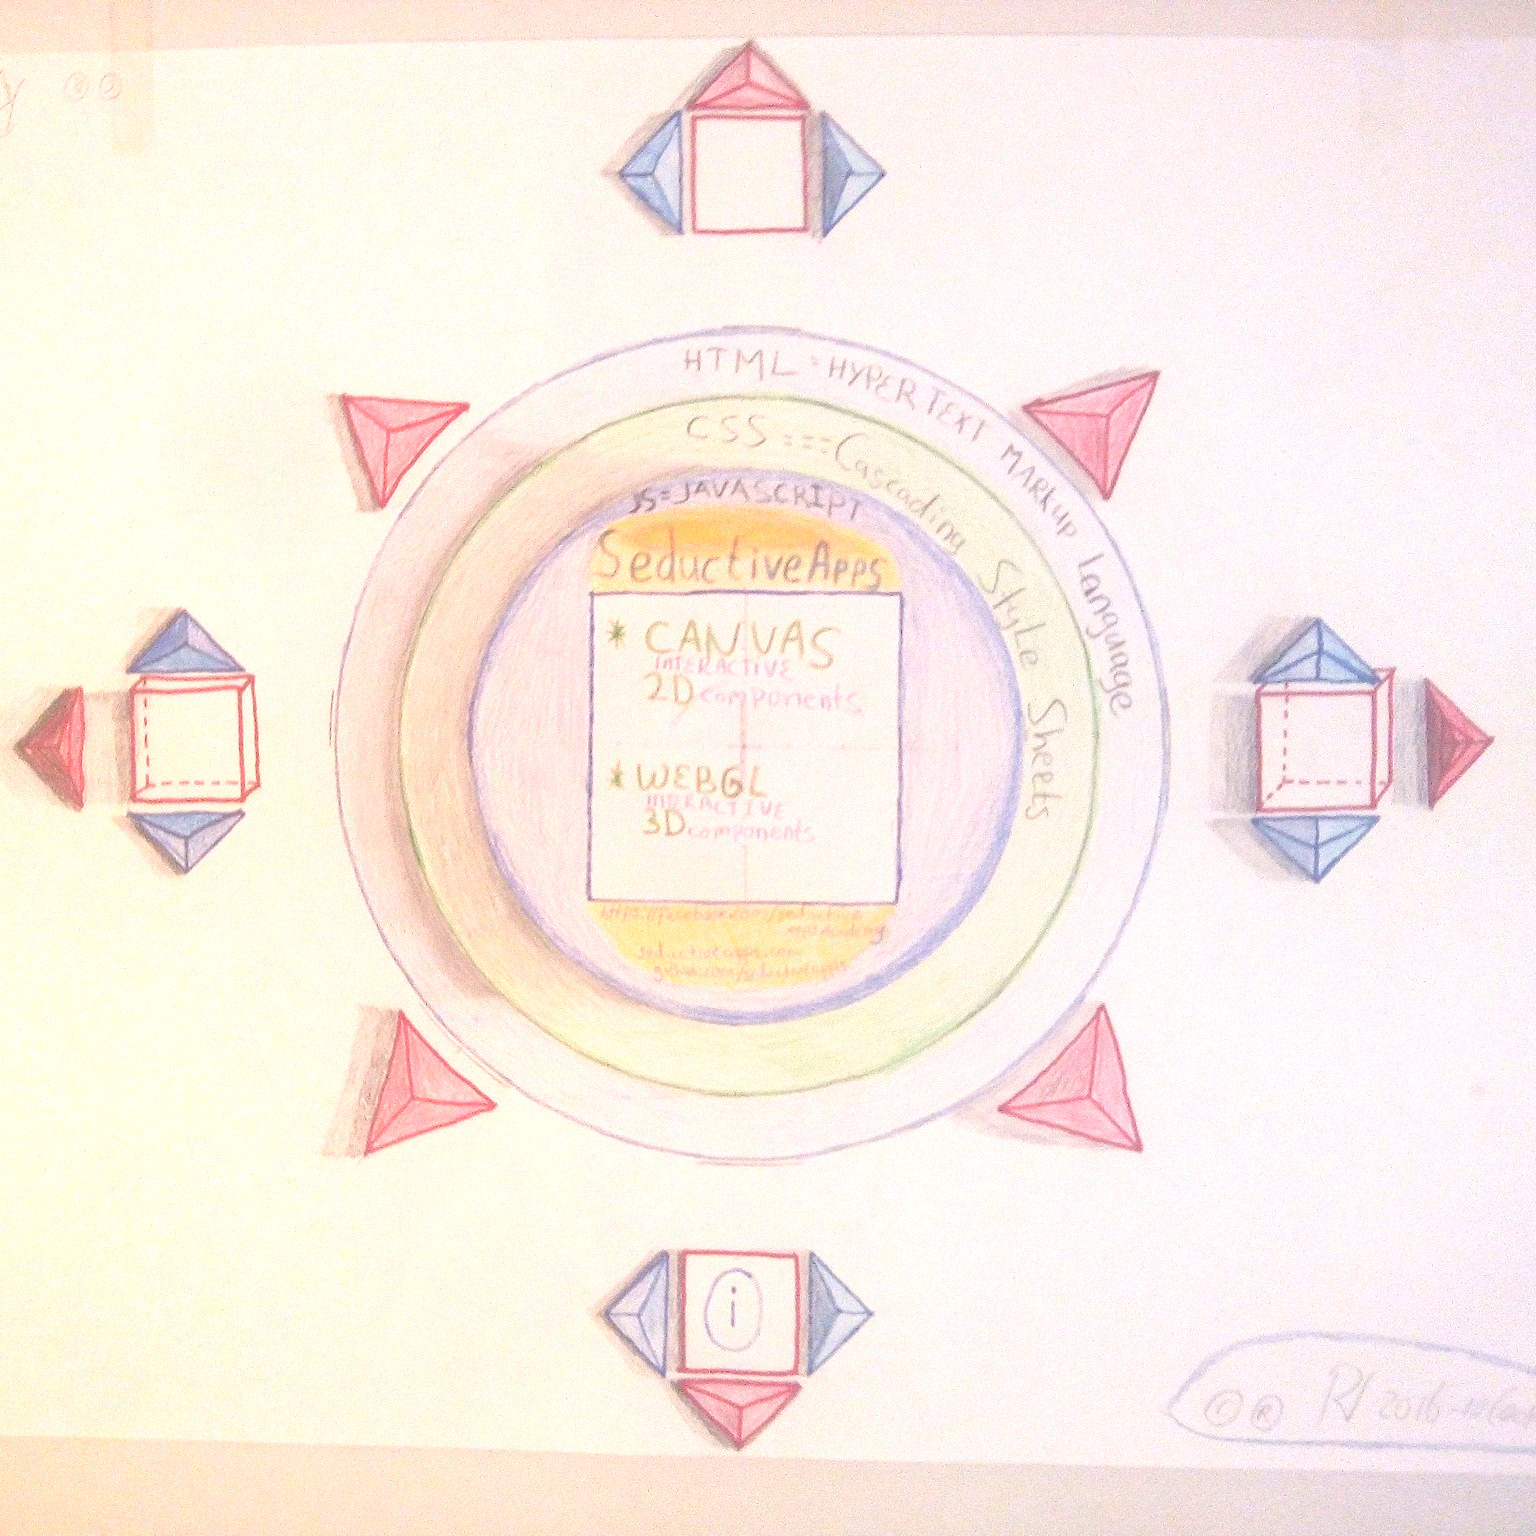 y
HTML = HYPER TEXT MARKup Language
CSS === Cascading Style Sheets
JS=JAVASCRIPT
SeductiveApps
* CANVAS
INTERACTIVE
2D components
* WEBGL
INTERACTIVE
3D components
https://facebook.com/seductive
apps Academy
seductiveapps.com
i
© ® 2016